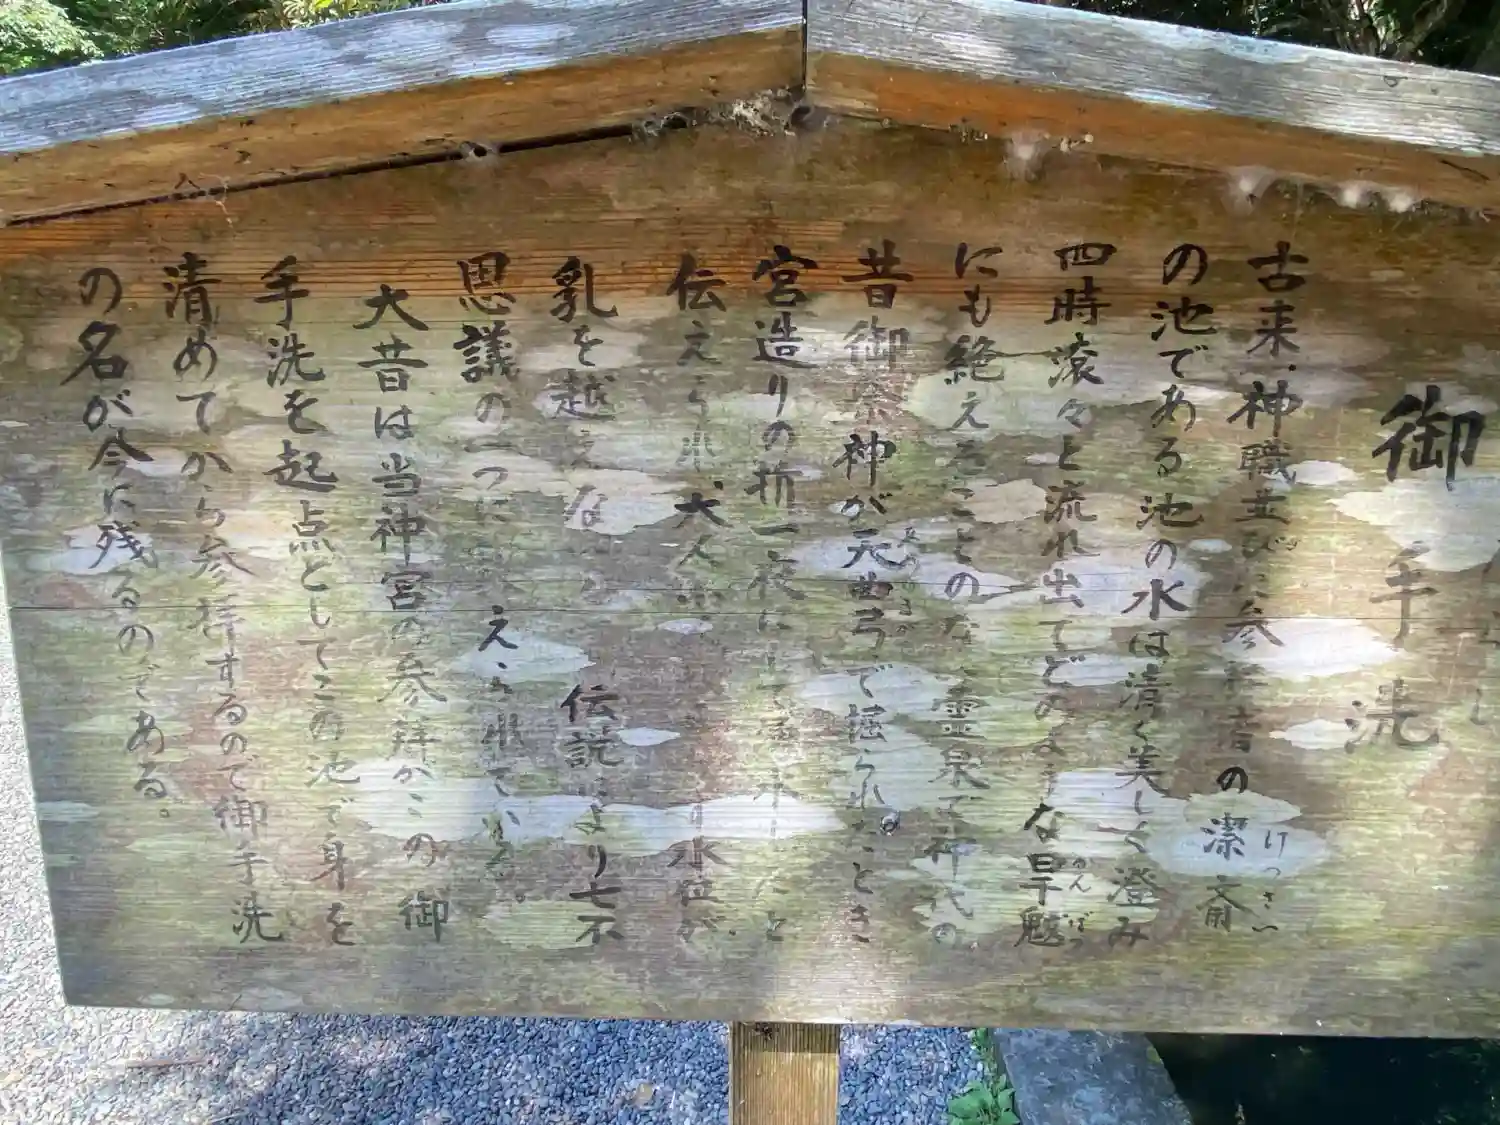 御手洗
古来、神職並びに参社者の潔斎
けっさい
の池である池の水は清く美しく澄み
四時滾々と流れ出てどのような旱魃
かんばつ
にも絶えることのな 霊泉で神代の
昔御祭神が天曲弓で掘られたとき
宮造りの折一夜にして湧水したと
伝えられ、大人小 り水位が
乳を越えない 伝説により七不
思議の一つに えられている。
大昔は当神宮の参拝がこの御
手洗を起点としてこの池で身を
清めてから参拝するので御手洗
の名が今に残るのである。